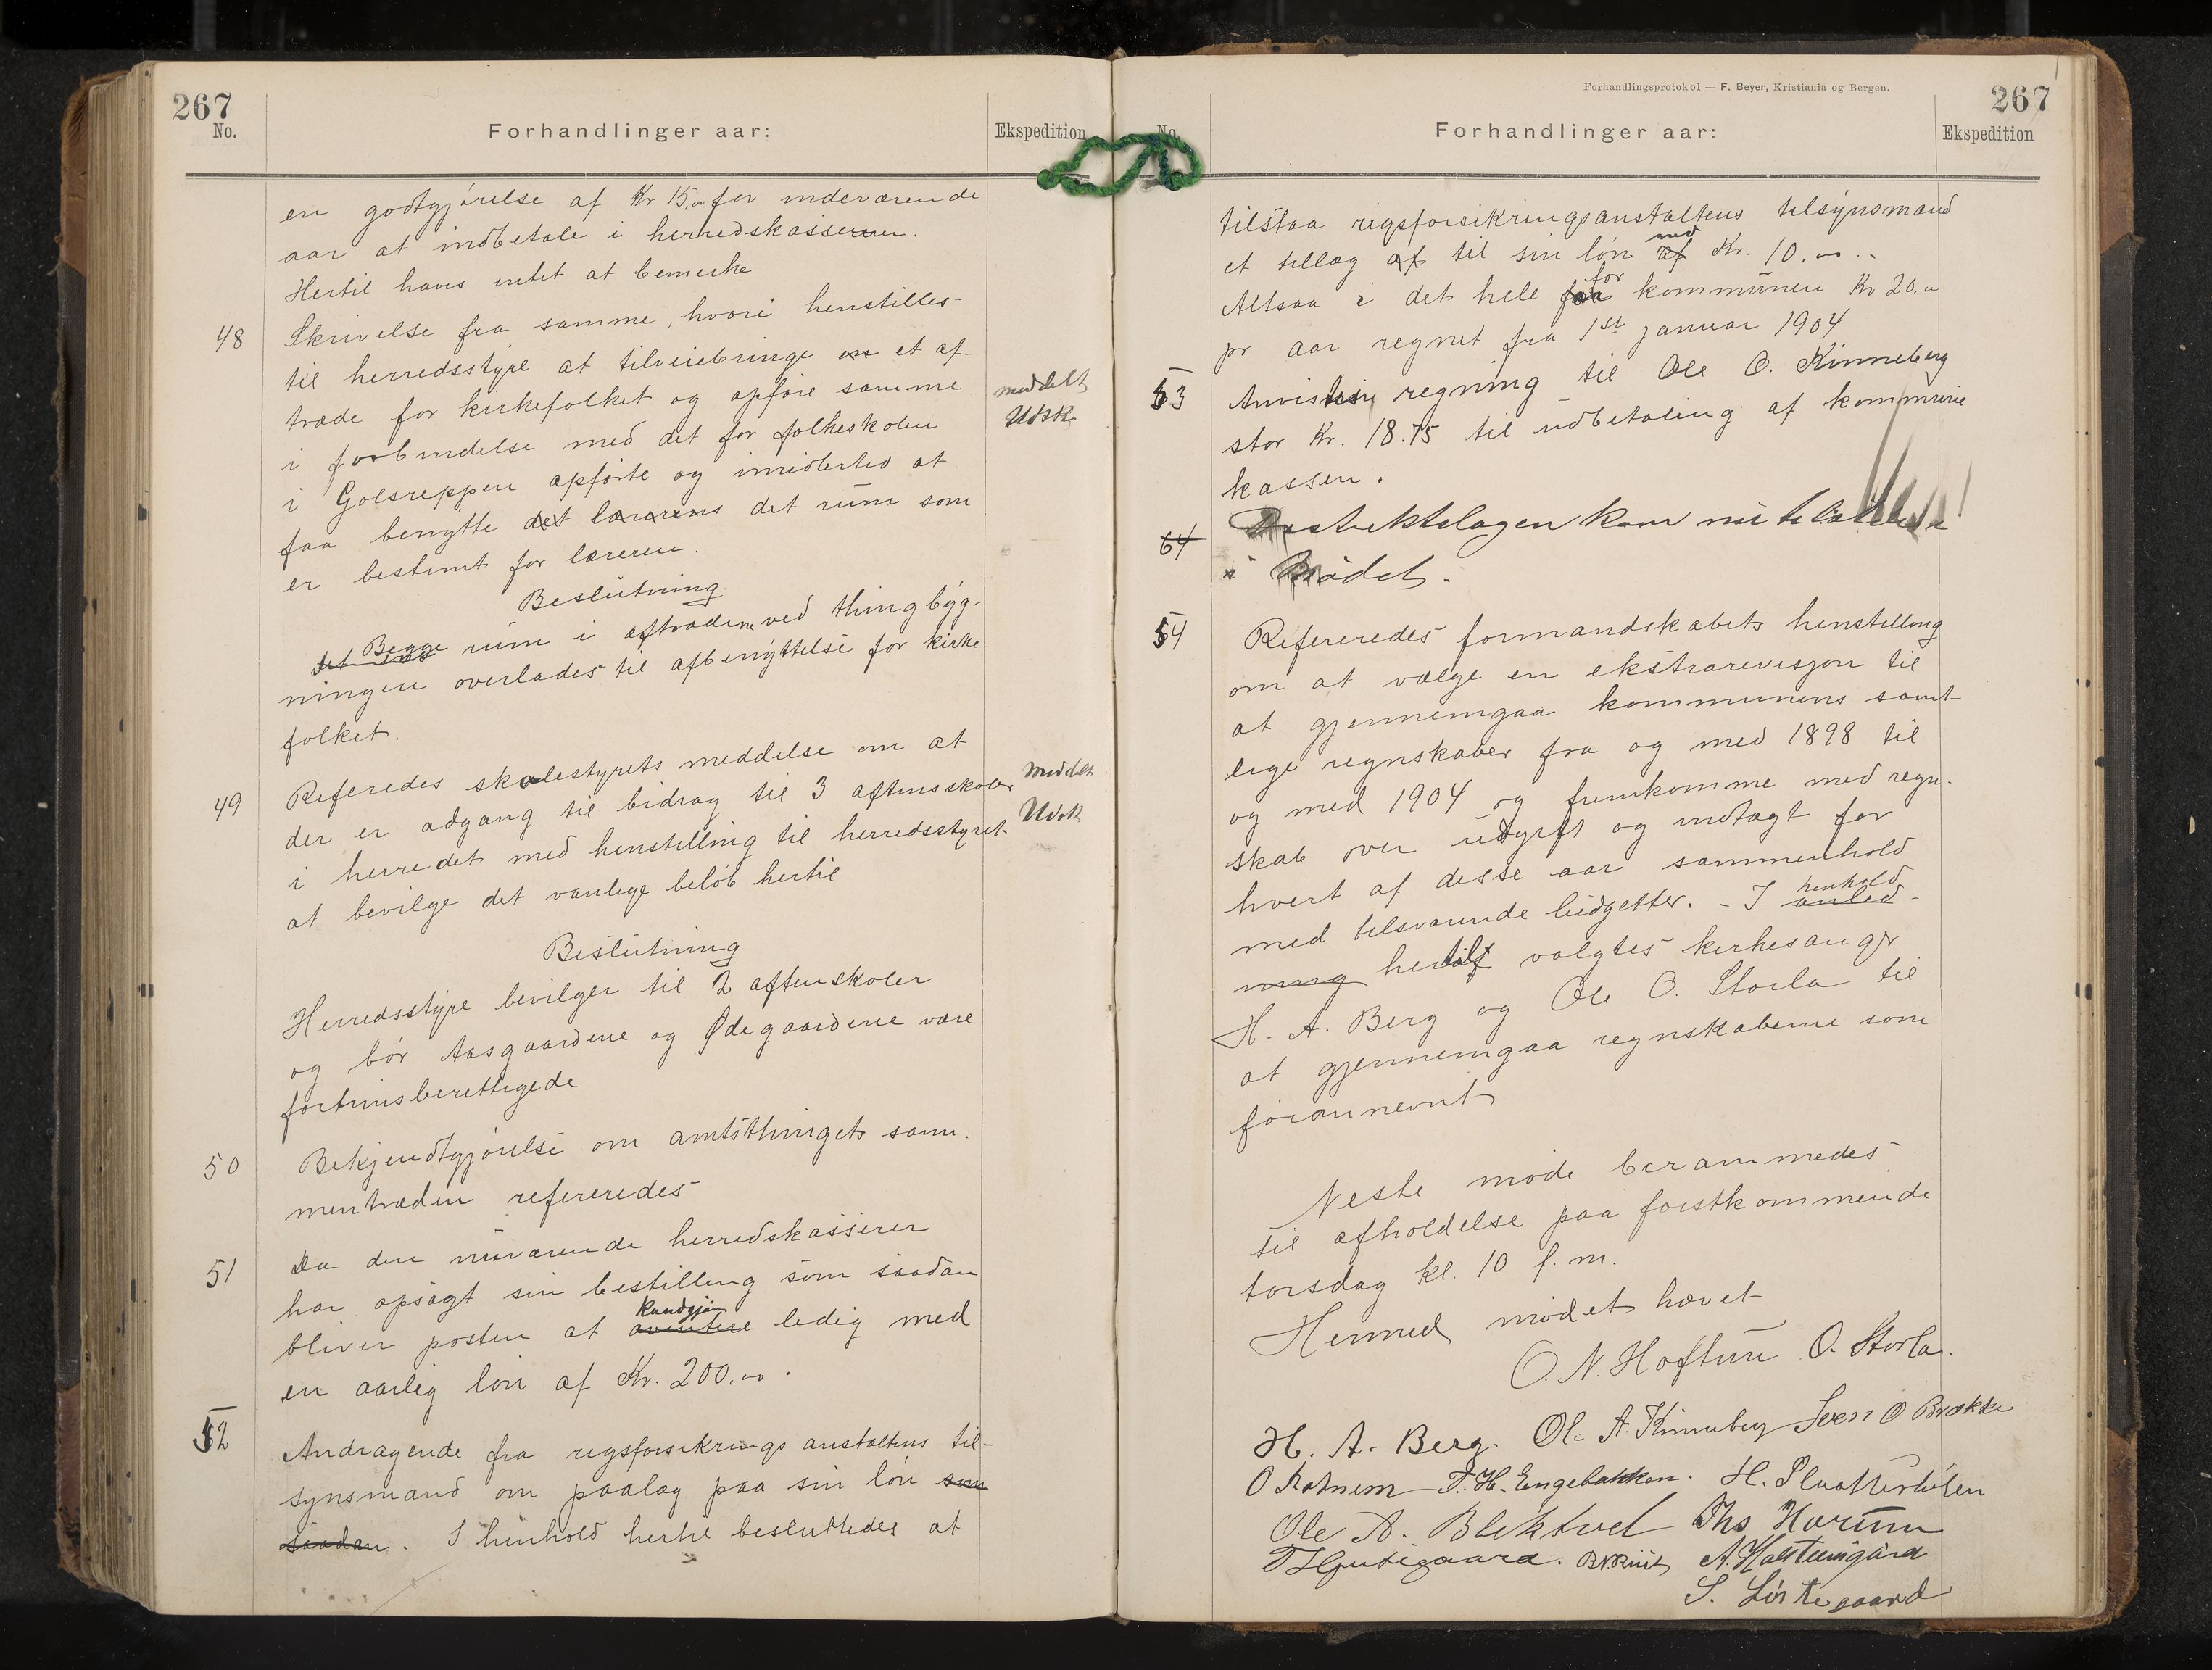 267
No.
Forhandlinger aar:
Ekspedition
en godtgjørelse af Kr 15,00 for indeværende
aar at indbetale i herredskassen.
Hertil haves intet at bemerke
48 Skrivelse fra samme, hvori henstilles
til herredsstyre at tilveiebringe en et af-
træde for kirkefolket og opføre samme
meddelt
Udsk
i forbindelse med det for folkeskolen
i Golsreppen opførte og imidlertid at
faa benytte det lærerens det rum som
er bestemt for læreren.
Beslutning
Begge
det rum i aftrædene ved thingbyg-
ningen overlades til afbenyttelse for kirke
folket.
49 Referedes skolestyrets meddelse om at
der er adgang til bidrag til 3 aftensskoler
Meddelt
Udsk
i herredet med henstilling til herredsstyret
at bevilge det vanlige beløb hertil
Beslutning
Herredsstyre bevilger til 2 aftenskoler
og bør Aasgaardene og Ødegaardene være
fortrinsberettigede
50 Bekjendtgjørelse om amtsthingets sam-
mentræden refereredes
51 Da den nuværende herredskasserer
har opsagt sin bestilling som saadan
kundgjøre
bliver posten at avertere ledig med
en aarlig løn af Kr. 200,00.
52 Andragende fra rigsforsikringsanstaltens til-
synsmand om paalæg paa sin løn som
saadan. I henhold hertil besluttedes at
Forhandlingsprotokol — F. Beyer, Kristiania og Bergen.
267
No.
Forhandlinger aar:
Ekspedition
tilstaa rigsforsikringsanstaltens tilsynsmand
med
et tillæg af til sin løn af Kr. 10.00..
for
Altsaa i det hele faa kommunen Kr 20.00
pr aar regnet fra 1st januar 1904
53 Anvistes regning til Ole O. Kinneberg
stor Kr. 18.75 til udbetaling af kommune
kassen.
64 Distriktslægen kom nu tilstede
i Mødet.
54 Refereredes formandskabets henstilling
om at vælge en ekstrarevisjon til
at gjennemgaa kommunens samt-
lige regnskaber fra og med 1898 til
og med 1904 og fremkomme med regn-
skab over udgift og indtægt for
hvert af disse aar sammenhold
henhold
med tilsvarende budgetter. - I anled-
ning hertil valgtes kirkesanger
H. A. Berg og Ole O. Storla til
at gjennemgaa regnskaberne som
forannevnt
Neste møde berammedes
til afholdelse paa førstkommende
torsdag kl. 10 f.m.
Hermed mødet hævet
O. N. Hoftun O. Storla.
H. A. Berg. Ole A. Kinneberg Sven O Brække
O Rotnem T. H. Engebakken. H.
Ole A. Blektvet Ths Harun
A. Halsteinsgård
S. Løstegaard